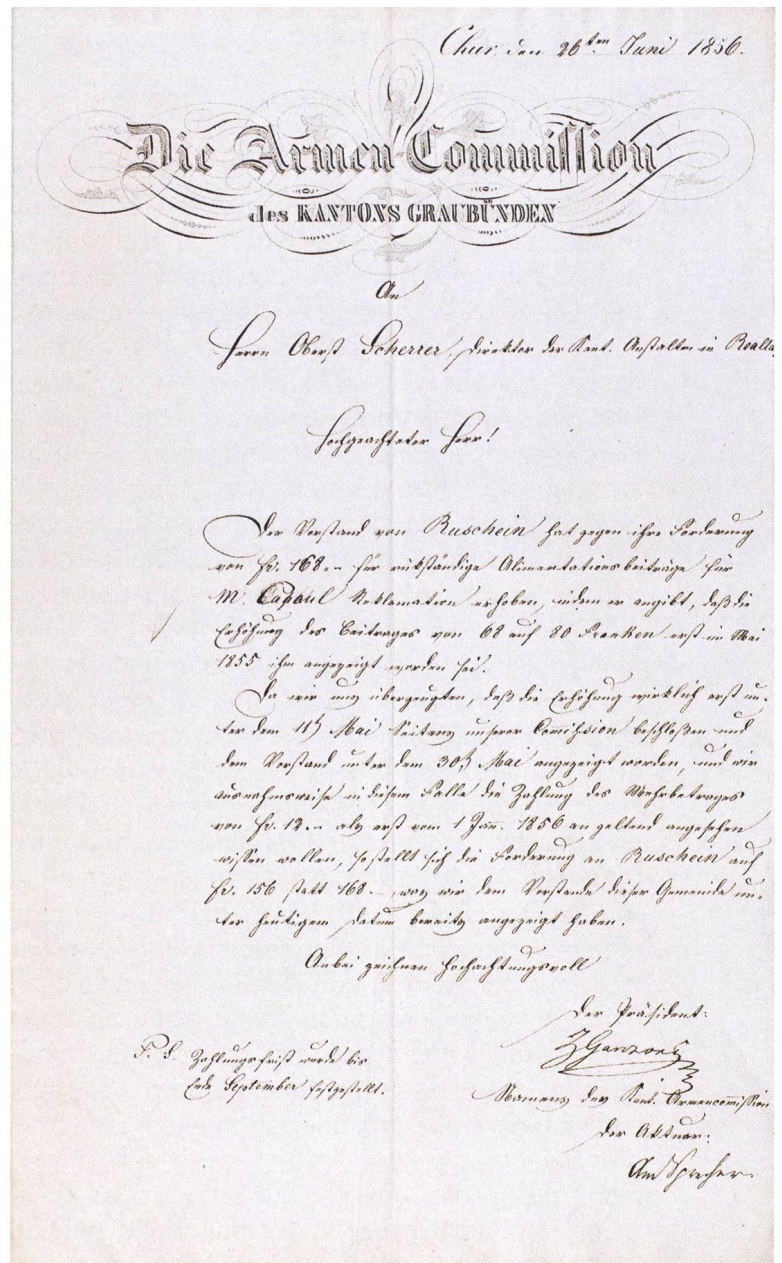 Chur, den 26ten Juni 1856.
Die Armen Commission
des KANTONS GRAUBÜNDEN
An
Herrn Oberst Scherrer, Direktor der Kant. Anstalten in Realta
Hochgeachteter Herr!
Der Vorstand von Ruschein hat gegen ihre Forderung
von Fr. 168.– für rükständige Alimentationsbeiträge für
M. Capaul Reklamation erhoben, indem er angibt, daß die
Erhöhung des Beitrages von 68 auf 80 Franken erst im Mai
1855 ihm angezeigt worden sei.
Da wir uns überzeugten, daß die Erhöhung wirklich erst un-
ter dem 11t Mai Seitens unserer Comißion beschloßen und
dem Vorstand unter dem 30t Mai angezeigt worden, und wir
ausnahmsweise in diesem Falle die Zahlung des Mehrbetrages
von Fr. 12.– als erst vom 1 Jan. 1856 an geltend angesehen
wissen wollen, so stellt sich die Forderung an Ruschein auf
Fr. 156 statt 168.–, was wir dem Vorstande dieser Gemeinde un-
ter heutigem Datum bereits angezeigt haben.
Anbei zeichnen hochachtungsvoll
Der Präsident:
Ganzoni
P. S. Zahlungsfrist wurde bis
Ende September festgestellt.
Namens der Kant. Armencommission
Der Aktuar:
Sprecher